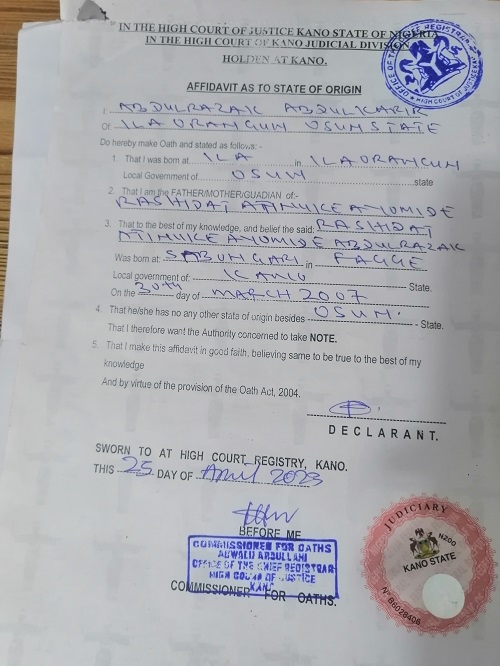 IN THE HIGH COURT OF JUSTICE KANO STATE OF NIGERIA
IN THE HIGH COURT OF KANO JUDICIAL DIVISION
HOLDEN AT KANO.
AFFIDAVIT AS TO STATE OF ORIGIN
I. ABDULRAZAK ABDULKABIR
Of ILA ORANGUN OSUN STATE
Do hereby make Oath and stated as follows:-
1. That I was born at ILA in ILA ORANGUN
Local Government of OSUN state
2. That I am the FATHER/MOTHER/GUADIAN of:-
RASHIDAT ATINUKE AYOMIDE
3. That to the best of my knowledge, and belief the said: RASHIDAT
ATINUKE AYOMIDE ABDULRAZAK
Was born at: SABUNGARI in FAGGE
Local government of: KANO State.
On the 30th day of MARCH 2007
4. That he/she has no any other state of origin besides OSUN. - State.
That I therefore want the Authority concerned to take NOTE.
5. That I make this affidavit in good faith, believing same to be true to the best of my
knowledge
And by virtue of the provision of the Oath Act, 2004.
DECLARANT.
SWORN TO AT HIGH COURT REGISTRY, KANO.
THIS 25 DAY OF April 2023
BEFORE ME
COMMISSIONER FOR OATHS
AUWALU ABDULLAHI
OFFICE OF THE CHIEF REGISTRAR
HIGH COURT OF JUSTICE
KANO
COMMISSIONER FOR OATHS.
JUDICIARY
N200
KANO STATE